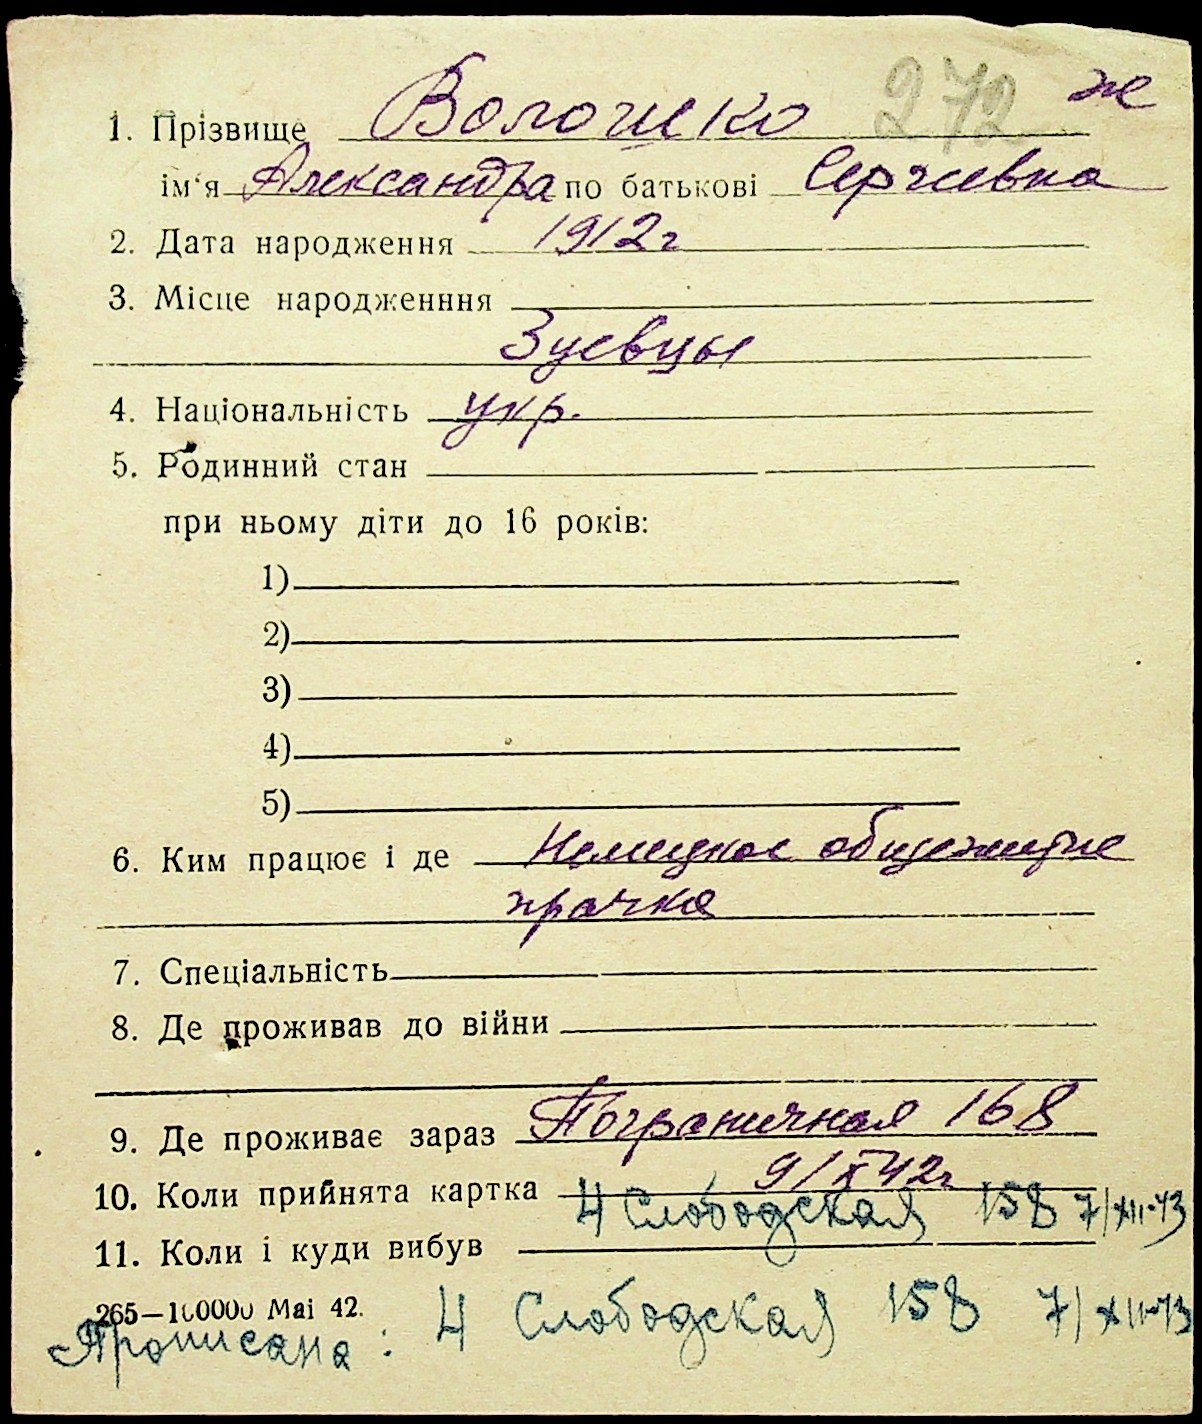 272 ж
1. Прізвище Волошко
ім'я Александра по батькові Сергеевна
2. Дата народження 1912 г
3. Місце народженння
Зуевцы
4. Національність укр.
5. Родинний стан
при ньому діти до 16 років:
1)
2)
3)
4)
5)
6. Ким працює і де Немецкое общежитие
прачка
7. Спеціальність
8. Де проживав до війни
9. Де проживає зараз Пограничная 168
10. Коли прийнята картка 9/X 42г
4 Слободская 158 7/XII-43
11. Коли і куди вибув
265—100000 Mai 42.
Прописана: 4 Слободская 158 7/XII-43